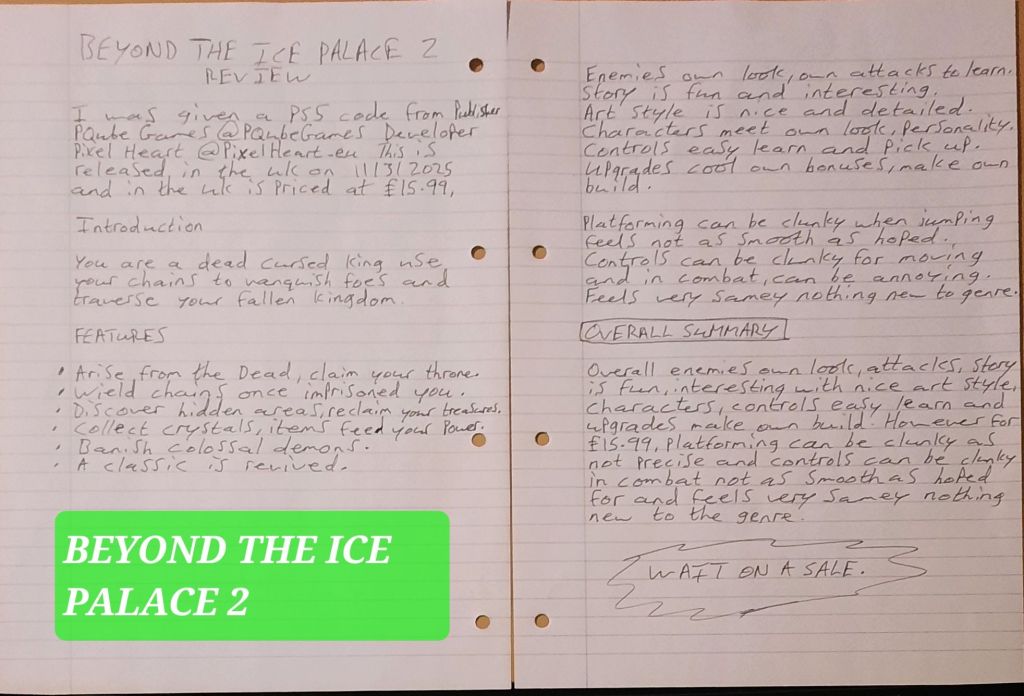 BEYOND THE ICE PALACE 2
REVIEW
I was given a PS5 code from Publisher
PQube Games @PQubeGames Developer
Pixel Heart @PixelHeart_eu This is
released in the uk on 11/3/2025
and in the uk is priced at £15.99,
Introduction
You are a dead cursed king use
your chains to vanquish foes and
traverse your fallen kingdom.
FEATURES
• Arise from the Dead, claim your throne.
• Wield chains once imprisoned you.
• Discover hidden areas, reclaim your treasures.
• Collect crystals, items feed your power.
• Banish colossal demons.
• A classic is revived.
BEYOND THE ICE
PALACE 2
Enemies own look, own attacks to learn.
Story is fun and interesting.
Art Style is nice and detailed.
Characters meet own look, personality.
Controls easy learn and pick up.
Upgrades cool own bonuses, make own
build.
Platforming can be clunky when jumping
feels not as smooth as hoped.
Controls can be clunky for moving
and in combat, can be annoying.
Feels very samey nothing new to genre.
OVERALL SUMMARY
Overall enemies own look, attacks, story
is fun, interesting with nice art style,
characters, controls easy learn and
upgrades make own build. However for
£15.99, platforming can be clunky as
not precise and controls can be clunky
in combat not as smooth as hoped
for and feels very samey nothing
new to the genre.
WAIT ON A SALE.